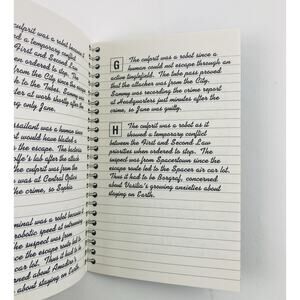 d a robot because
a temporary conflict
First and Second Law
en ordered to stop. The
from the City since
the
at work shortly after the
ng only Jane.
ssailant was a human since
the escape. The
lab after the attack
culprit was from the
was at Central
the crime, so Sophia
minal was a robot because
robotic speed at
suspect was from
the escape
car lot. Thus it had to
ned about Amadiro's
about staying on Earth.
G The culprit was a robot since a
human could not escape through an
active tinglefield. The tube pass proved
that the attacker was from the City.
Sammy was recording the crime report
at Headquarters just minutes after the
crime, so Jane was guilty.
H The culprit was a robot as it
showed a temporary conflict
between the First and Second Law
priorities when ordered to stop. The
suspect was from Spacertown since the
escape route led to the Spacer air car lot.
Thus it had to be Borgraf, concerned
about Vasilia's growing anxieties about
staying on Earth.